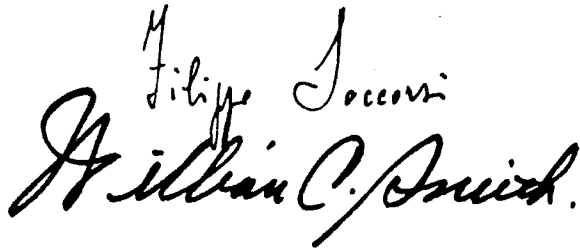 Filippo Soccorsi
William C. Smith.